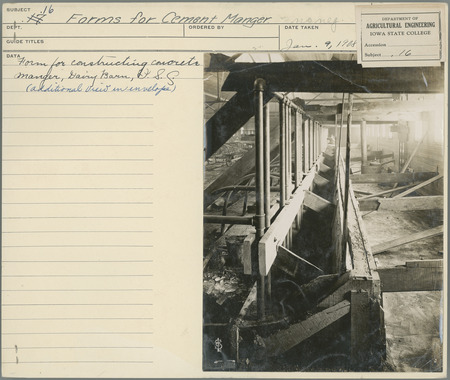 SUBJECT .16 Forms for Cement Manger
DEPT. ORDERED BY DATE TAKEN
GUIDE TITLES Jan. 9, 19
DEPARTMENT OF
AGRICULTURAL ENGINEERING
IOWA STATE COLLEGE
Accession
Subject .16
DATA
Form for constructing concrete
manger, Dairy Barn, I. S. C.
(additional view in envelope)